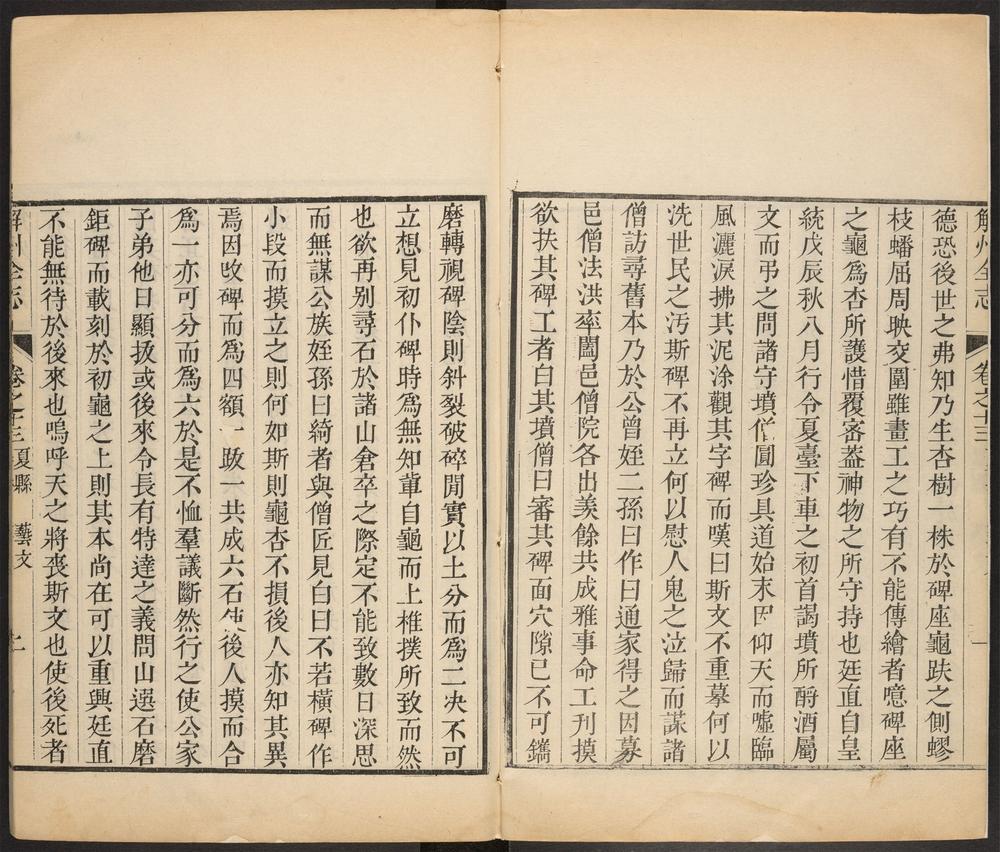 解州全志 卷之十三
德恐後世之弗知乃生杏樹一株於碑座龜趺之側蟉
枝蟠屈周映交圍雖畫工之巧有不能傳繪者噫碑座
之龜爲杏所護惜覆審葢神物之所守持也廷直自皇
統戊辰秋八月行令夏臺下車之初首謁墳所酹酒屬
文而弔之問諸守墳僧圓珍具道始末因仰天而噓臨
風灑淚拂其泥涂觀其字碑而嘆曰斯文不重摹何以
洗世民之污斯碑不再立何以慰人鬼之泣歸而謀諸
僧訪尋舊本乃於公曾姪二孫曰作曰通家得之因募
邑僧法洪率闔邑僧院各出羡餘共成雅事命工刋摸
欲扶其碑工者白其墳僧曰審其碑面穴隙已不可鐫
磨轉視碑陰則斜裂破碎閒實以土分而爲二决不可
立想見初仆碑時爲無知軰自龜而上椎撲所致而然
也欲再别尋石於諸山倉卒之際定不能致數日深思
而無謀公族姪孫曰綺者與僧匠見白曰不若橫碑作
小段而摸立之則何如斯則龜杏不損後人亦知其異
焉因攺碑而爲四額一跋一共成六石使後人摸而合
爲一亦可分而爲六於是不恤羣議斷然行之使公家
子弟他日顯拔或後來令長有特達之義問山選石磨
鉅碑而載刻於初龜之上則其本尚在可以重興廷直
不能無待於後來也嗚呼天之將喪斯文也使後死者
解州全志 卷之十三 夏縣 藝文